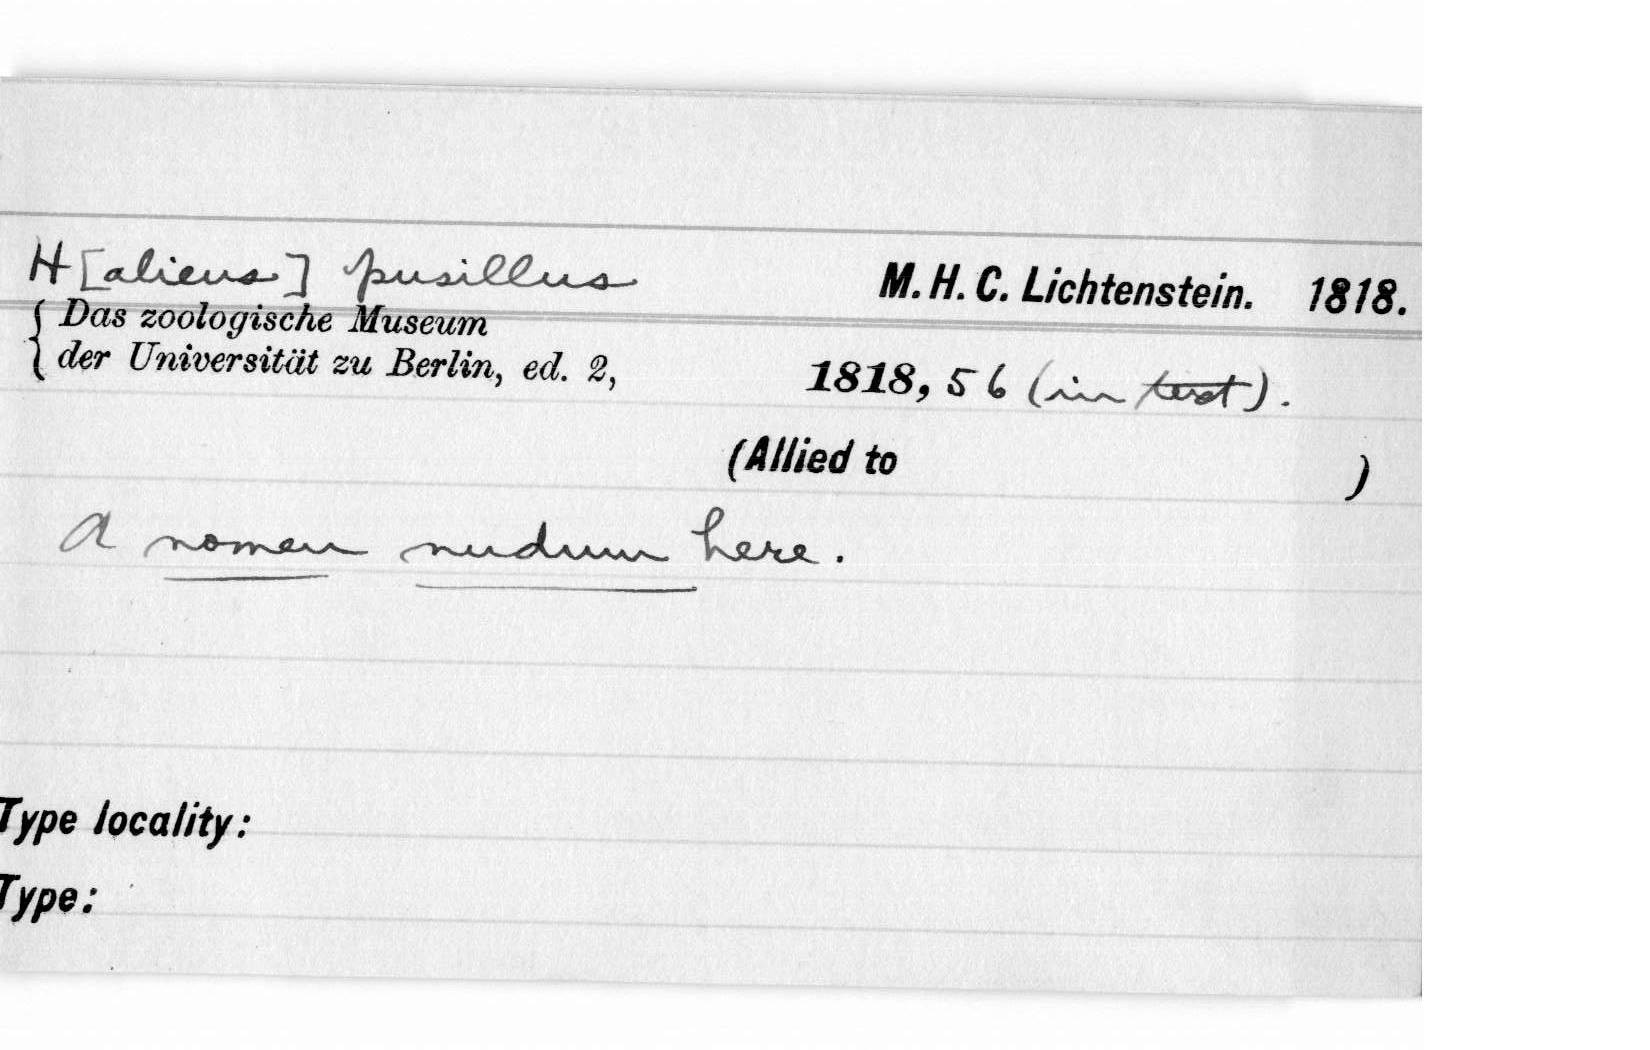 H[alieus] pusillus M. H. C. Lichtenstein. 1818.
{ Das zoologische Museum
der Universität zu Berlin, ed. 2, 1818, 56 (in text).
(Allied to )
A nomen nudum here.
Type locality:
Type: